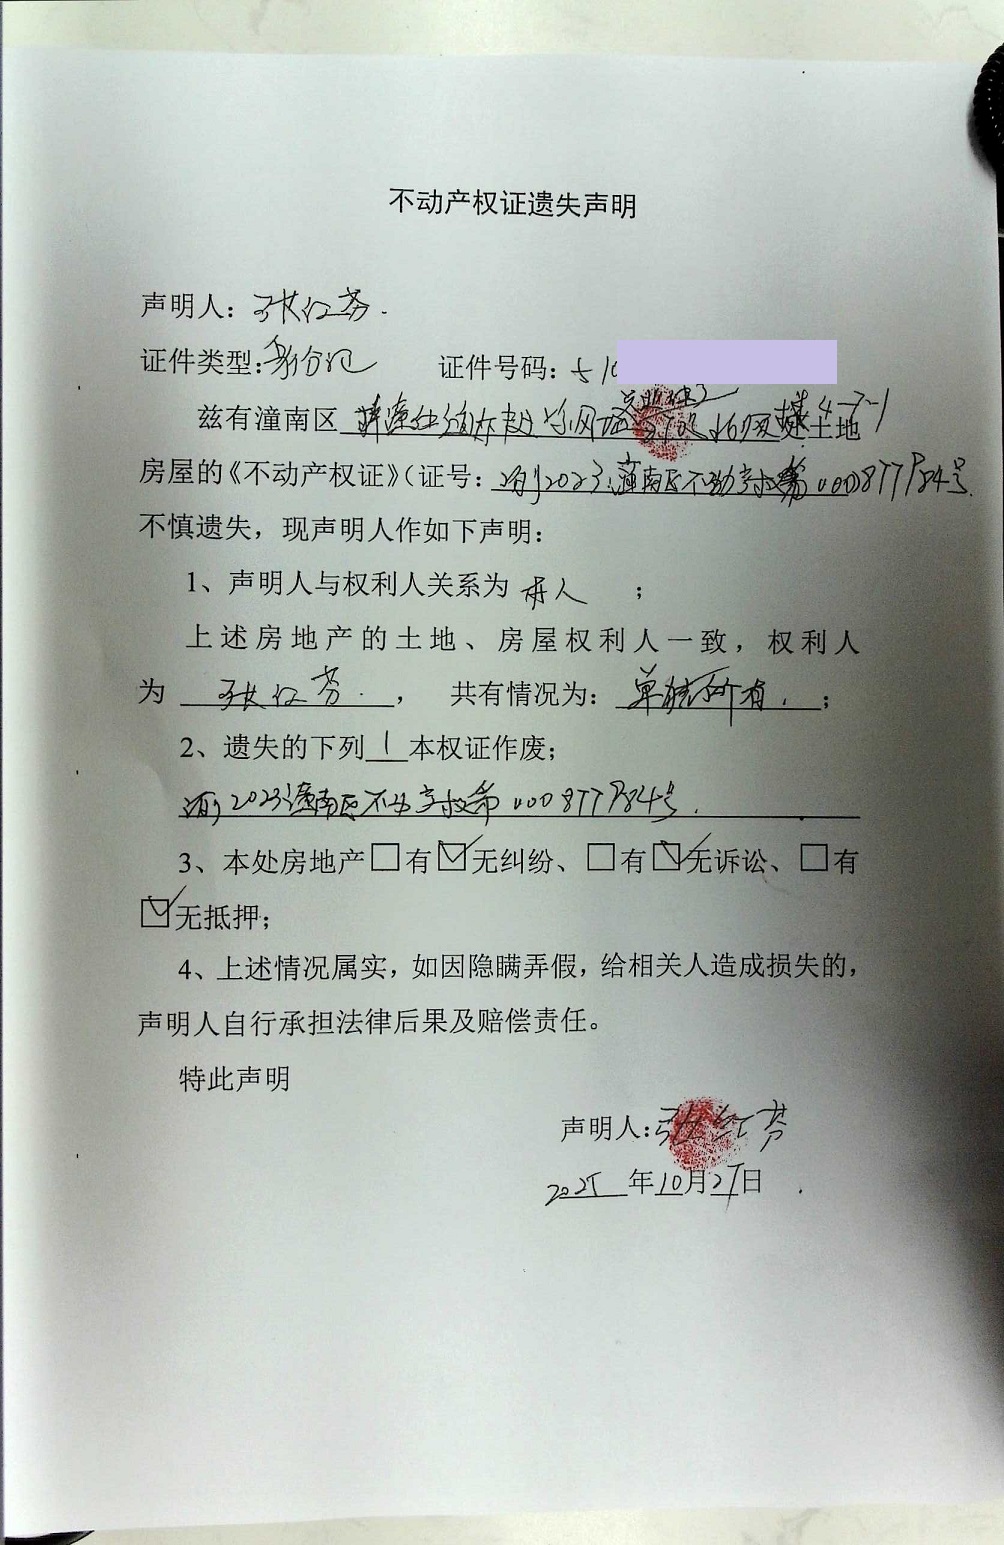 不动产权证遗失声明
声明人：张红芬
证件类型：身份证 证件号码：510
兹有潼南区 土地
房屋的《不动产权证》（证号：渝2023潼南区不动产权第000877984号
不慎遗失，现声明人作如下声明：
1、声明人与权利人关系为 本人 ；
上述房地产的土地、房屋权利人一致，权利人
为 张红芬 ， 共有情况为：单独所有 ；
2、遗失的下列 1 本权证作废；
渝2023潼南区不动产权第000877984号
3、本处房地产□有☑无纠纷、□有☑无诉讼、□有
☑无抵押；
4、上述情况属实，如因隐瞒弄假，给相关人造成损失的，
声明人自行承担法律后果及赔偿责任。
特此声明
声明人：张红芬
2025年10月27日